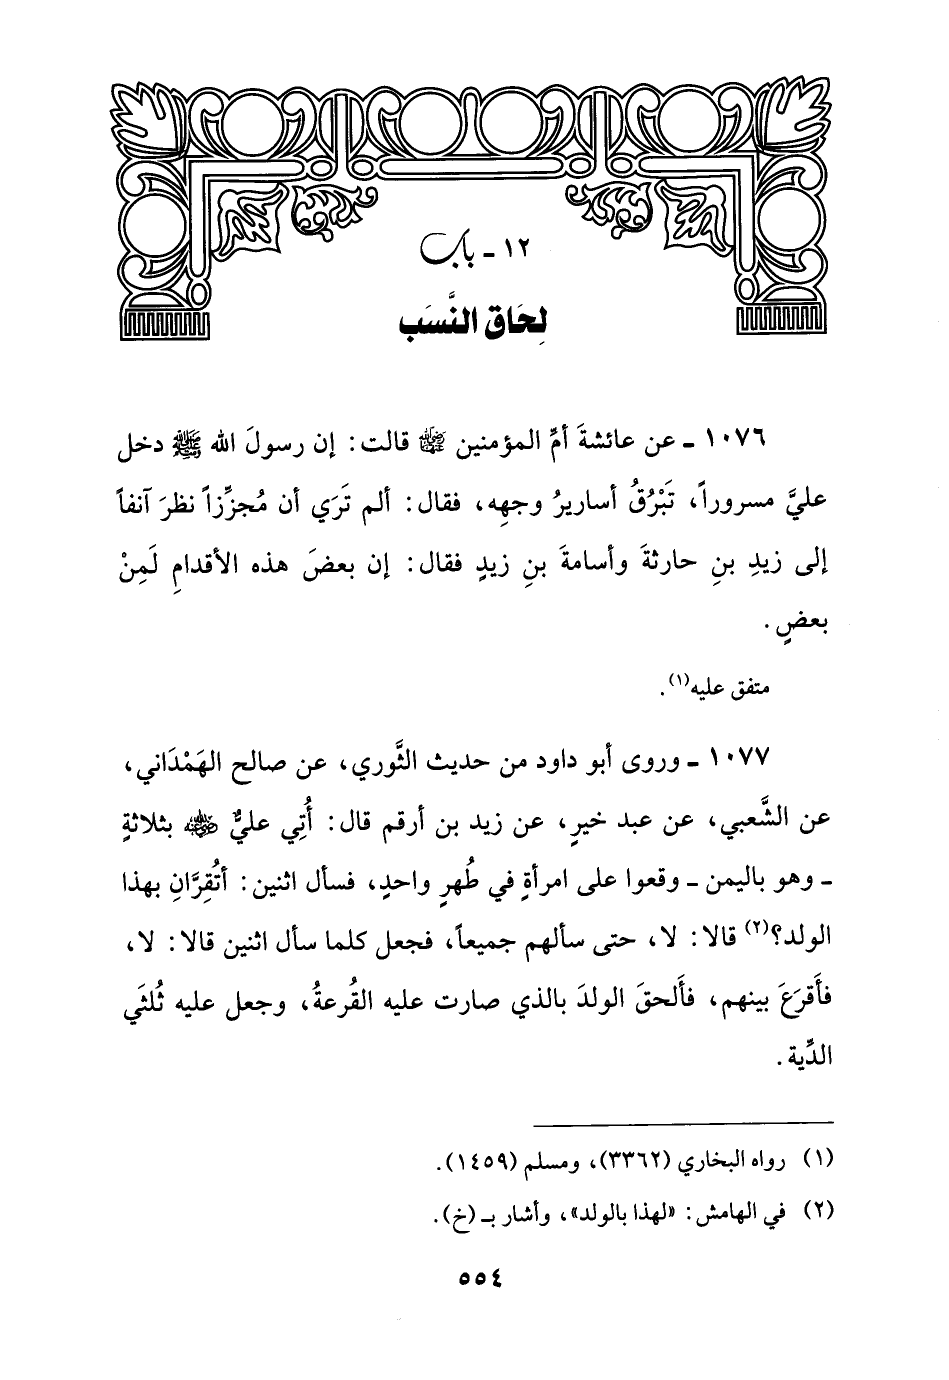 ١٢ - باب
لِحَاق النَّسَب
١٠٧٦ - عن عائشةَ أمِّ المؤمنين ﵂ قالت: إن رسولَ الله ﷺ دخل
عليَّ مسروراً، تَبْرُقُ أساريرُ وجهِه، فقال: ألم تَرَي أن مُجزِّزاً نظرَ آنفاً
إلى زيدِ بنِ حارثةَ وأسامةَ بنِ زيدٍ فقال: إن بعضَ هذه الأقدامِ لَمِنْ
بعضٍ.
متفق عليه(١).
١٠٧٧ - وروى أبو داود من حديث الثَّوري، عن صالح الهَمْدَاني،
عن الشَّعبي، عن عبد خيرٍ، عن زيد بن أرقم قال: أُتِي عليٌّ ﵁ بثلاثةٍ
- وهو باليمن - وقعوا على امرأةٍ في طُهرٍ واحدٍ، فسأل اثنين: أتُقِرَّانِ بهذا
الولد؟(٢) قالا: لا، حتى سألهم جميعاً، فجعل كلما سأل اثنين قالا: لا،
فأَقرَعَ بينهم، فأَلحقَ الولدَ بالذي صارت عليه القُرعةُ، وجعل عليه ثُلثَي
الدِّية.
(١) رواه البخاري (٣٣٦٢)، ومسلم (١٤٥٩).
(٢) في الهامش: «لهذا بالولد»، وأشار بـ (خ).
٥٥٤